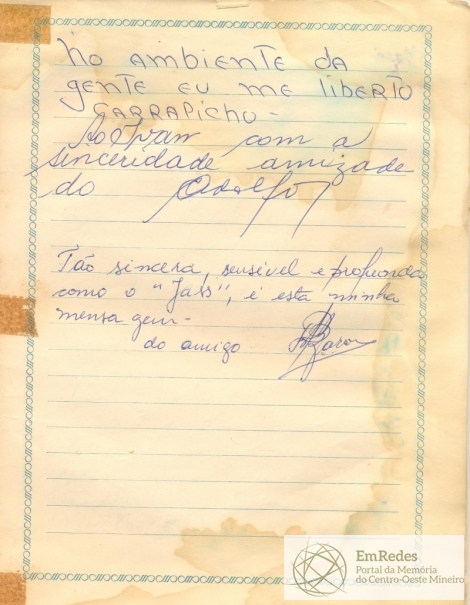 NO AMBIENTE DA
GENTE EU ME LIBERTO
CARRAPICHO -
Ao Ivan com a
sinceridade amizade
do Adolfo
Tão sincera, sensível e profunda
como o "Jass", é esta minha
mensagem -
do amigo
EmRedes
Portal da Memória
do Centro-Oeste Mineiro